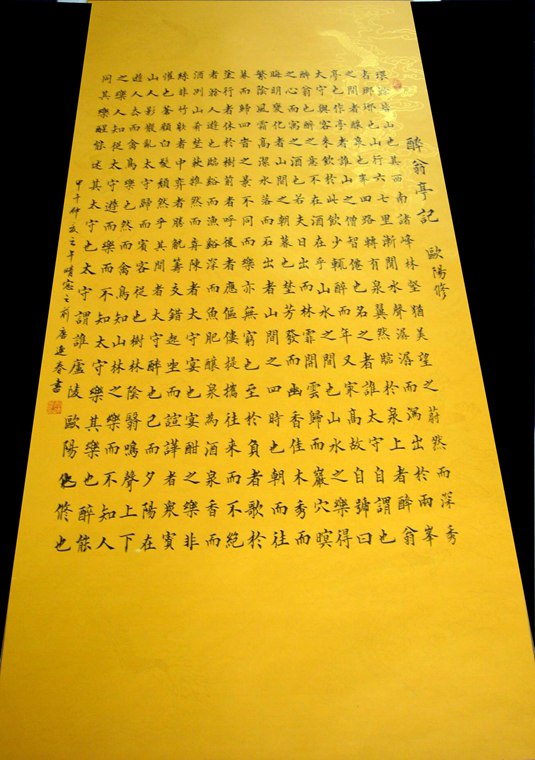 醉翁亭記 歐陽修
環滁皆山也其西南諸峰林壑猶美望之蔚然而深秀
者瑯琊也山行六七里漸聞水聲潺潺而瀉出於兩峯
之間者釀泉也峯回路轉有亭翼然臨於泉上者醉翁
亭也作亭者誰山之僧智僊也名之者誰太守自謂也
太守與客來飲於此飲少輒醉而年又冣高故自號曰
醉翁也醉翁之意不在酒在乎山水之間也山水之樂得
之心而寓之酒也若夫日出而林霏開雲歸而巖穴暝
晦明變化者山間之朝暮也野芳發而幽香佳木秀而
繁陰風霜高潔水落而石出者山間之四時也朝而往
暮而歸四時之景不同而樂亦無窮也至於負者歌於
塗行者休於樹前者呼後者應傴僂提攜往来而不絕
者滁人遊也臨谿而漁谿深而魚肥釀泉為酒泉香而
酒洌山肴野蔌雜然而前陳者太守宴也宴酣之樂非
絲非竹射者中弈者勝觥籌交錯起坐而諠譁者衆賓
懽也蒼顏白髮頹然乎其間者太守醉也已而夕陽在
山人影散亂太守歸而賓客從也樹林陰翳鳴聲上下
遊人去而禽鳥樂也然而禽鳥知山林之樂而不知人
之樂人知從太守遊而樂而不知太守之樂其樂也醉能
同其樂醒能述其太守也太守謂誰廬陵歐陽修也
甲午仲秋之午晴窓之前唐連春書